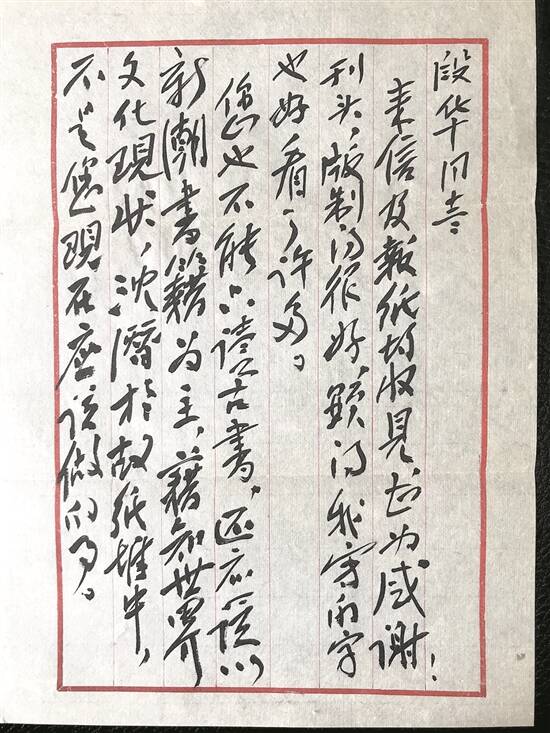 段华同志
来信及报纸均收见,甚为感谢!
刊头,版制得很好,显得我写的字
也好看了许多。
你也不能只读古书,还应读以
新潮书籍为主,藉知世界
文化现状,沈潜于故纸堆中,
不是您现在应该做的事。